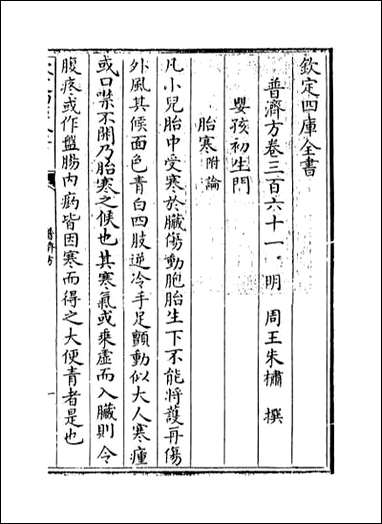 欽定四庫全書
普濟方卷三百六十一 明 周王朱橚 撰
嬰孩初生門
胎寒附論
凡小兒胎中受寒於臟傷動胞胎生下不能將護再傷
外風其候面色青白四肢逆冷手足顫動似大人寒瘧
或口噤不開乃胎寒之候也其寒氣或乘虛而入臟則令
腹疼或作盤腸内痛皆因寒而得之大便青者是也
普濟方
一